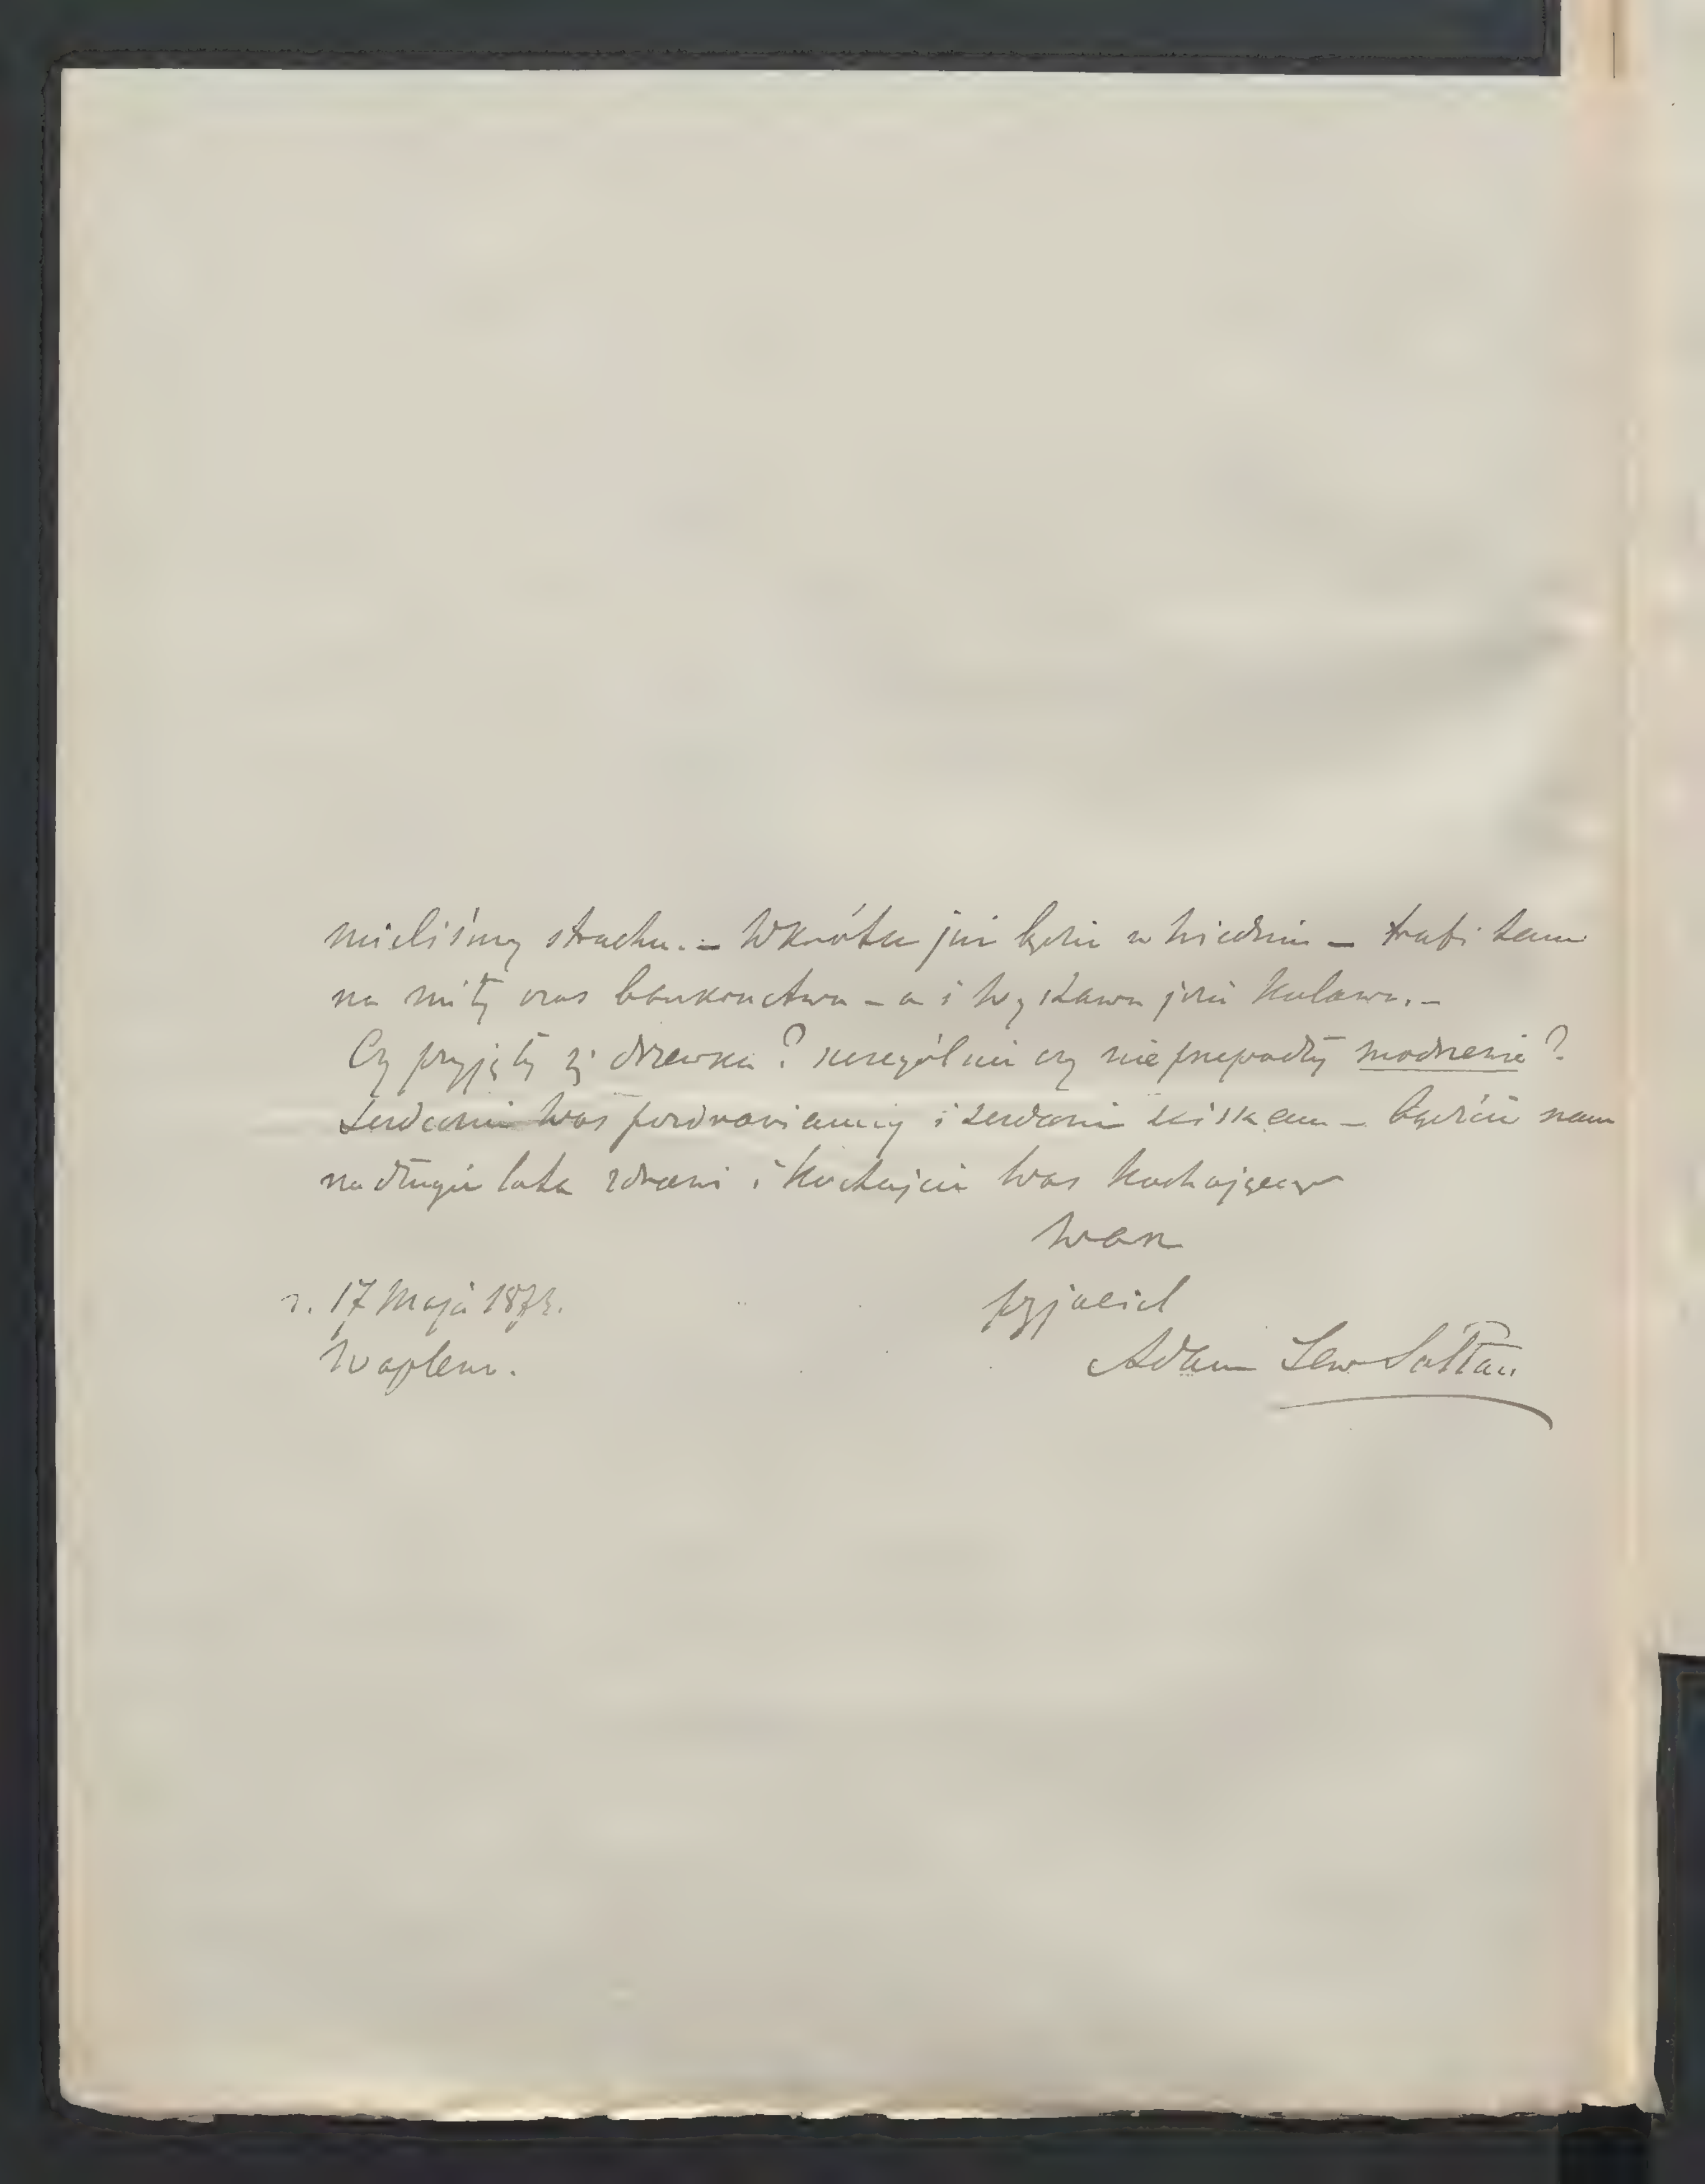 mieliśmy strachu. – Wkrótce już będzie w Wiedniu – trafi tam
na miły czas bankructwa – a i Wystawa jest kulawa. –
Czy przyjęły się drzewka? szczególnie czy nie przepadły modrzenie?
Serdecznie Was pozdrawiamy i serdecznie ściskam – bądźcie nam
na długie lata zdrowi i kochajcie Was kochającego
Wasz
r. 17 Maja 1873. przyjaciel
Waplewo. Adam Lew Sołtan